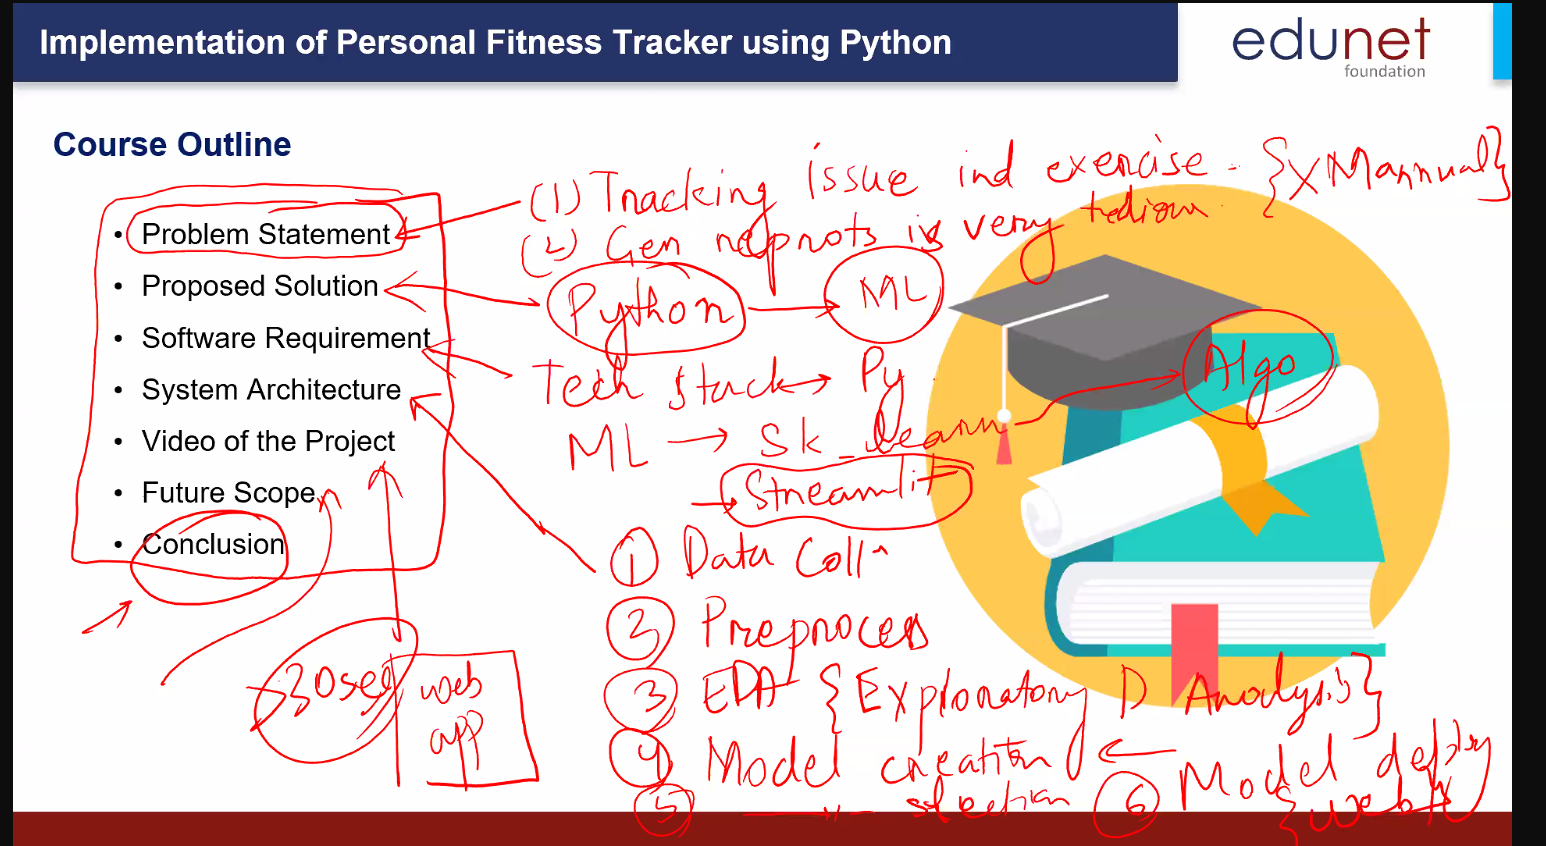 Implementation of Personal Fitness Tracker using Python
edunet
foundation
Course Outline
• Problem Statement
• Proposed Solution
• Software Requirement
• System Architecture
• Video of the Project
• Future Scope
• Conclusion
(1) Tracking issue ind exercise - {X Mannual}
(2) Gen reprots is very
Python → ML
Tech stack → Py
ML → Sk_learn → Algo
→ Streamlit
1 Data Coll^
2 Preprocess
3 EDA {Exploratory D Analysis}
4 Model creation
5 selection
6 Model deploy
{web
30sec
web
app